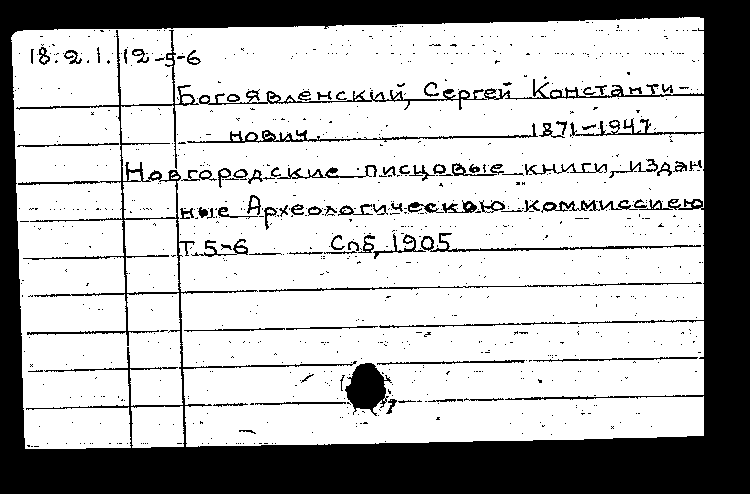 18.2.1.12-5-6
Богоявленский, Сергей Константи-
нович. 1871-1947
Новгородские писцовые книги, издан
ные Археологическою коммиссиею
Т.5-6 Спб, 1905